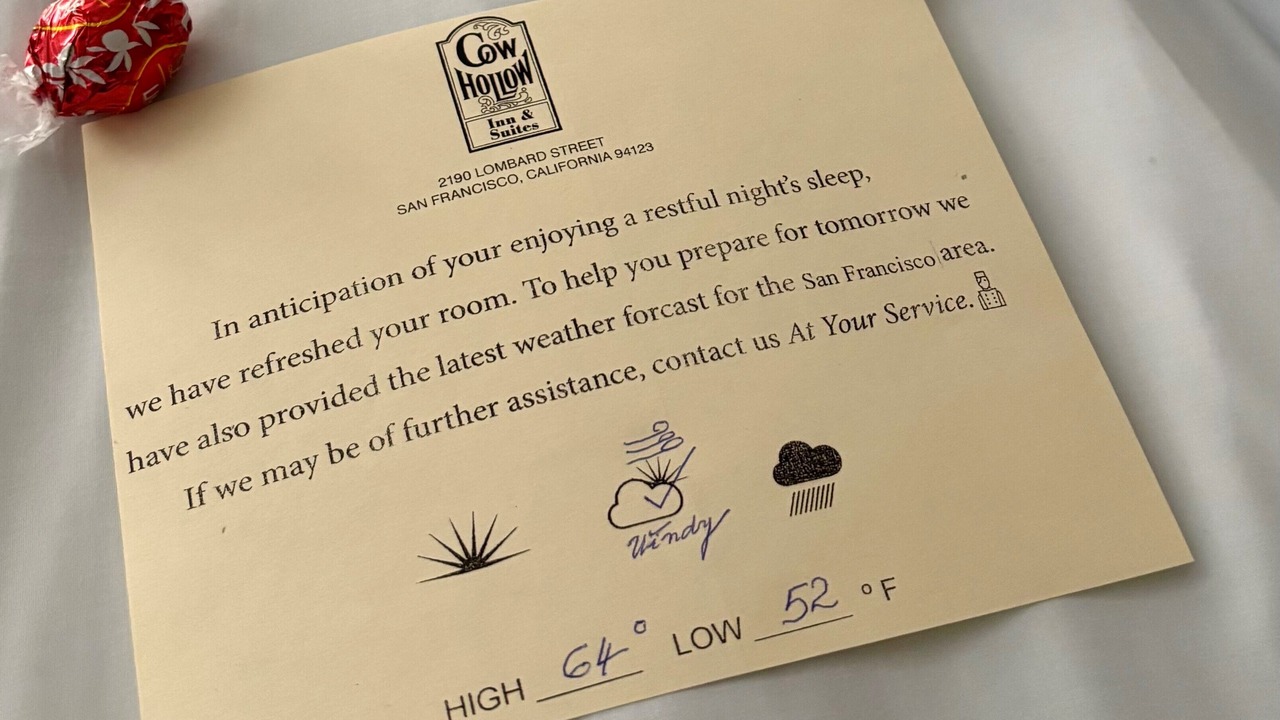 Cow
Hollow
Inn &
Suites
2190 LOMBARD STREET
SAN FRANCISCO, CALIFORNIA 94123
In anticipation of your enjoying a restful night's sleep,
we have refreshed your room. To help you prepare for tomorrow we
have also provided the latest weather forcast for the San Francisco area.
If we may be of further assistance, contact us At Your Service.
Windy
HIGH 64° LOW 52 °F